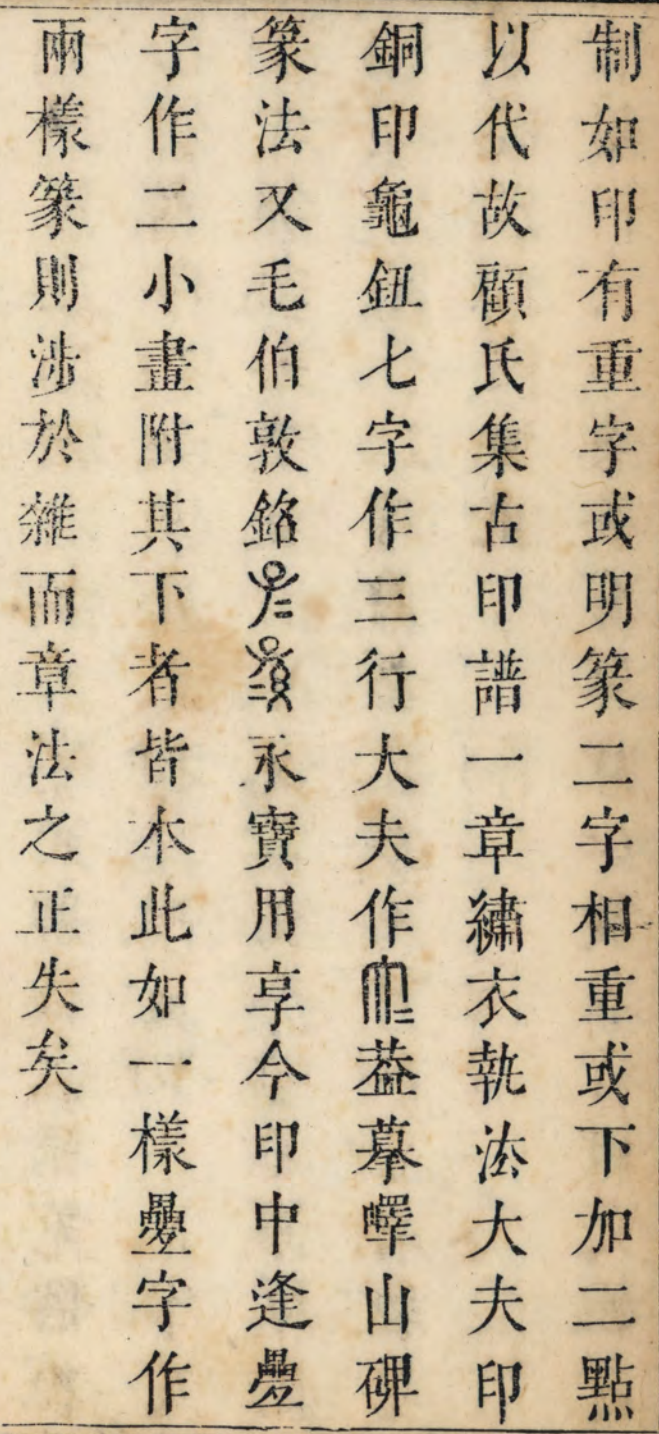 制如印有重字或明篆二字相重或下加二㸃
以代故顧氏集古印譜一章繡衣執法大夫印
銅印龜鈕七字作三行大夫作葢摹嶧山碑
篆法又毛伯敦銘永寶用享今印中逢疊
字作二小畫附其下者皆本此如一樣疊字作
兩樣篆則涉於雜而章法之正失矣